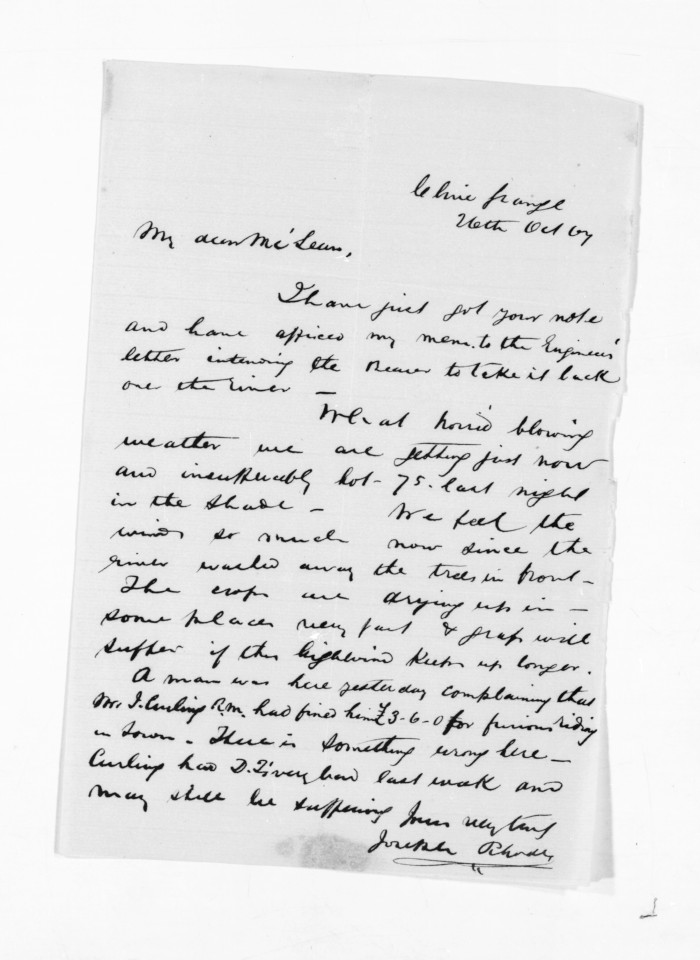 Clive Grange
26th Oct 67
My dear McLean,
I have just got your note
and have affixed my memo. to the Engineers'
letter intending the Bearer to take it back
over the river —
What horrid blowing
weather we are getting just now
and insufferably hot - 75. last night
in the shade — We feel the
winds so much now since the
river washed away the trees in front —
The crops are drying up in —
some places very fast & grass will
suffer if this high wind keeps up longer.
A man was here yesterday complaining that
Mr. J. Curling R.M. had fined him £3-6-0 for furious riding
in town. There is something wrong here —
Curling had D.T's very bad last week and
may still be suffering Yours very truly
Joseph Rhodes